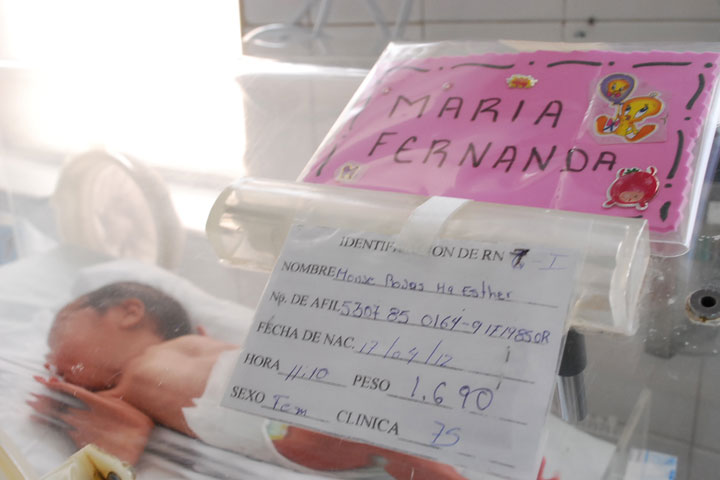 MARIA
FERNANDA
IDENTIFICACION DE RN 7-I
NOMBRE Monse Rojas Ma Esther
No. DE AFIL. 5307 85 0164-9 1F1985OR
FECHA DE NAC. 17/04/12
HORA 11.10 PESO 1.690
SEXO Fem CLINICA 75